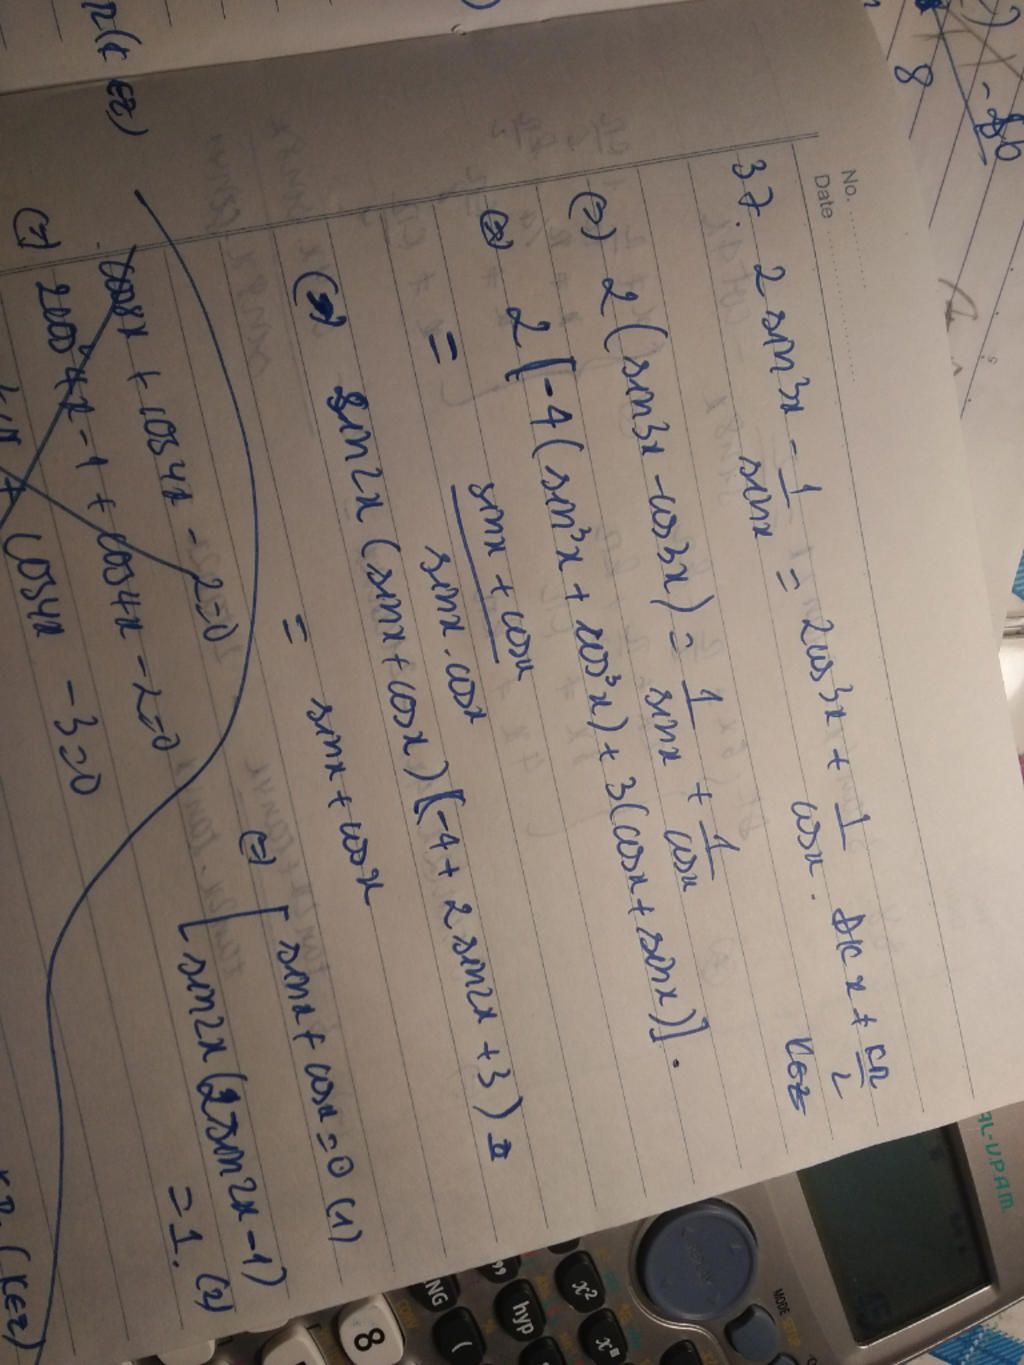 No. ........
Date ........
37. 2 sin3x - 1/sinx = 2cos3x + 1/cosx. ĐK x ≠ kπ/2 k∈Z
(=) 2(sin3x - cos3x) = 1/sinx + 1/cosx
(=) 2[-4(sin³x + cos³x) + 3(cosx + sinx)].
= sinx + cosx / sinx.cosx
(=) sin2x (sinx + cosx)[-4 + 2sin2x + 3)
= sinx + cosx
(=) [ sinx + cosx = 0 (1)
[ sin2x(2sin2x - 1) = 1. (2)
cos8x + cos4x - 2 = 0
(=) 2cos²4x - 1 + cos4x - 2 = 0
cos4x - 3 = 0
(k∈Z)
(k∈Z)
8
AL-V.P.A.M.
MODE
x²
hyp
(
8